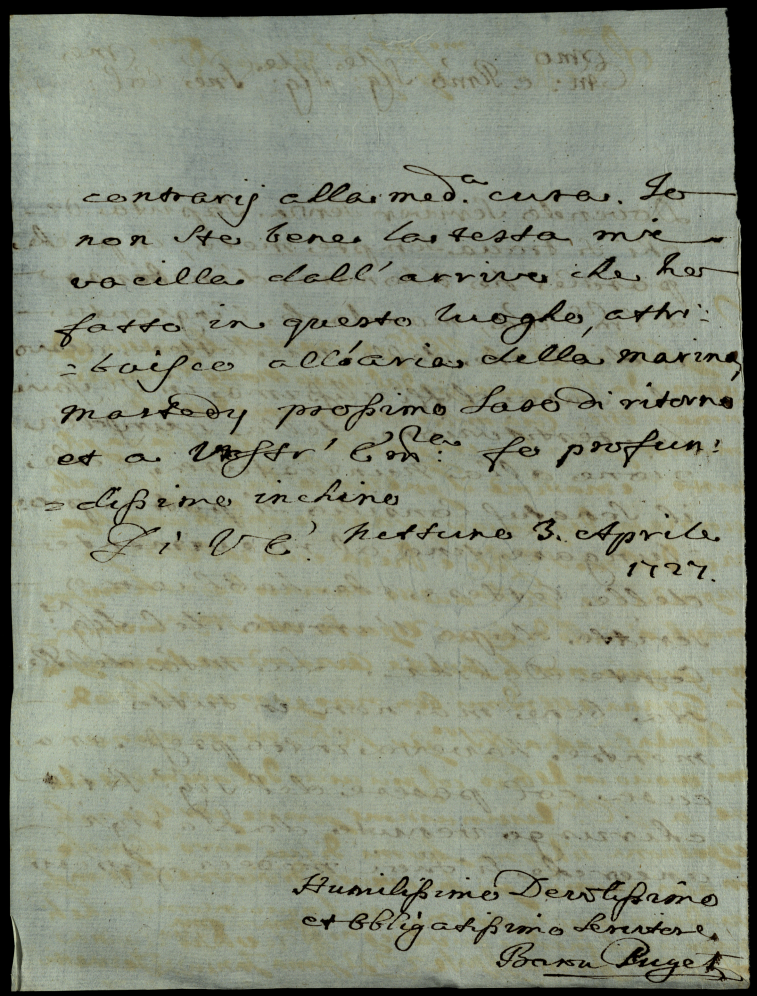 contrarij alla med.ª cura. Io
non sto bene la testa mi
vacilla dall' arrivo che ho
fatto in questo luogho, attri:
=buisco all'aria della marina,
martedy prossimo sarò di ritorno
et a Vostr' Em.za fo profun:
=dissimo inchino
Di V. E. Nettuno 3. Aprile
1727.
Humilissimo Devotissimo
et obbligatissimo servitore
Puget